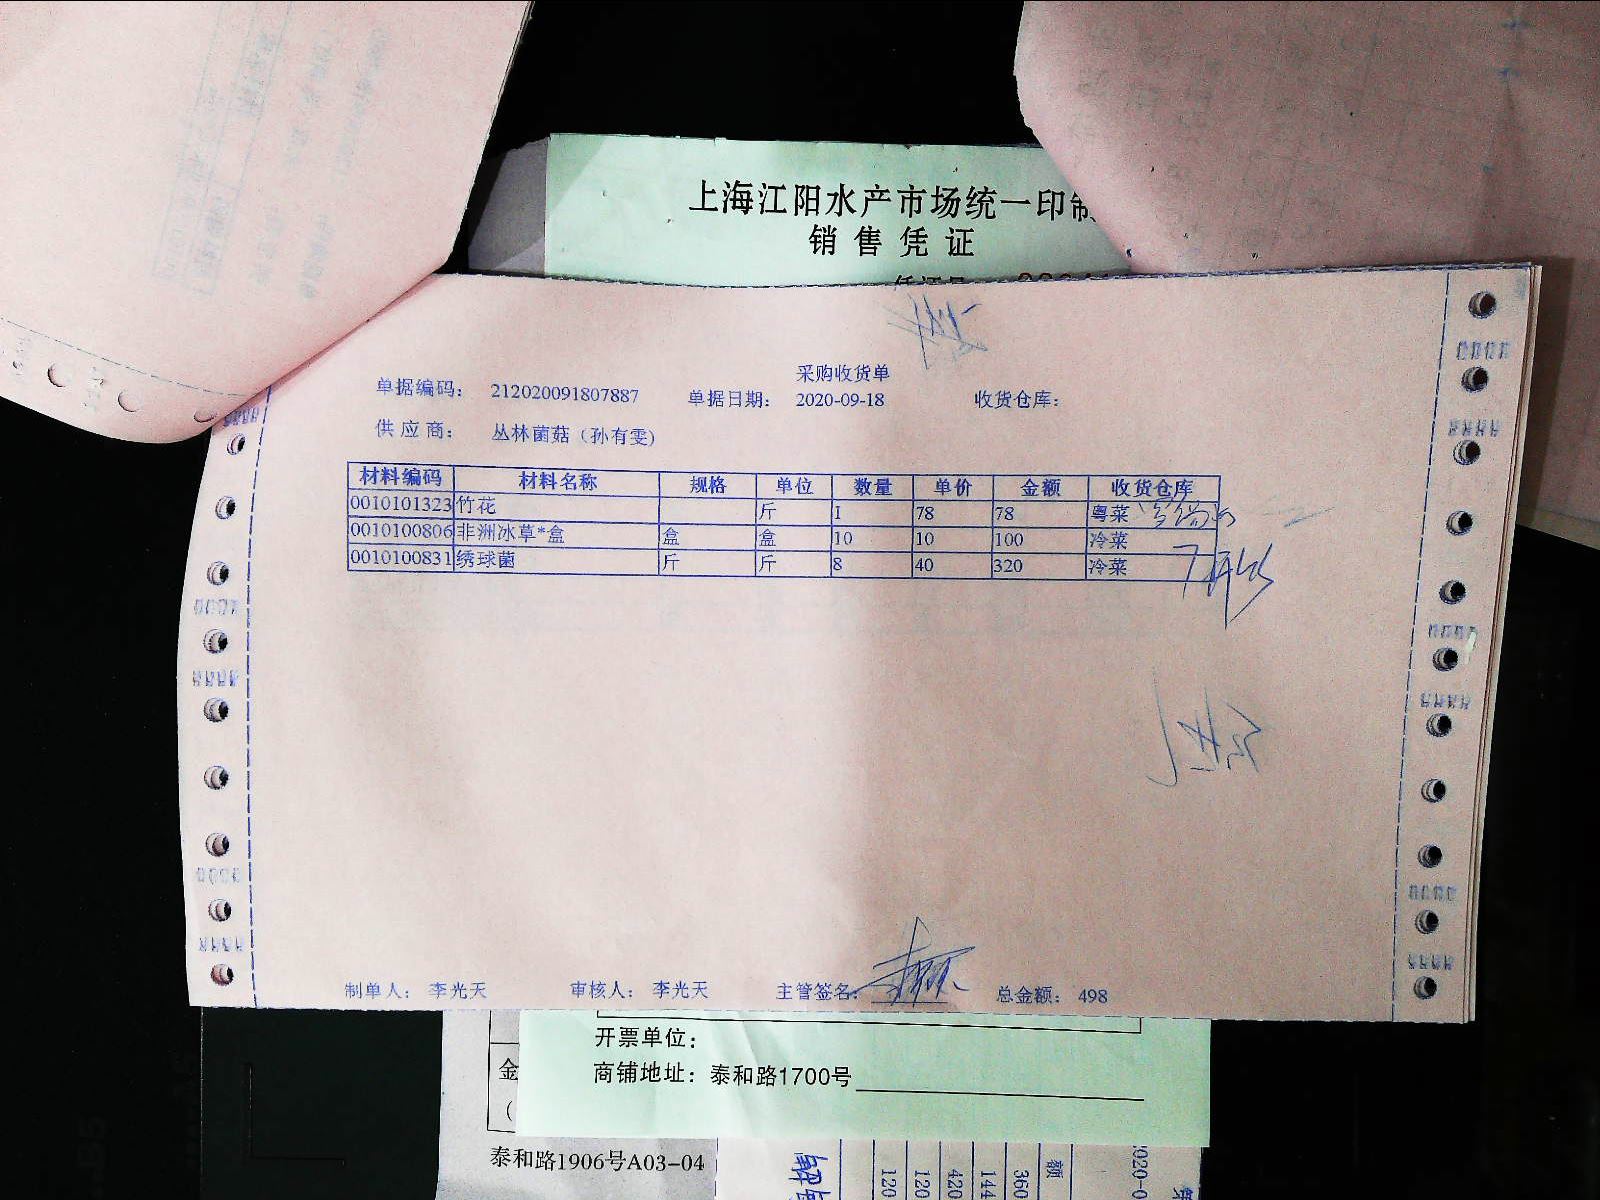 上海江阳水产市场统一印制
销售凭证
采购收货单
单据编码： 212020091807887 单据日期： 2020-09-18 收货仓库：
供应商： 丛林菌菇（孙有雯)
材料编码 材料名称 规格 单位 数量 单价 金额 收货仓库
0010101323 竹花 斤 1 78 78 粤菜
0010100806 非洲冰草*盒 盒 盒 10 10 100 冷菜
0010100831 绣球菌 斤 斤 8 40 320 冷菜
制单人： 李光天 审核人： 李光天 主管签名： 总金额： 498
开票单位：
商铺地址：泰和路1700号
金
泰和路1906号A03-04
额
360
144
420
120
120